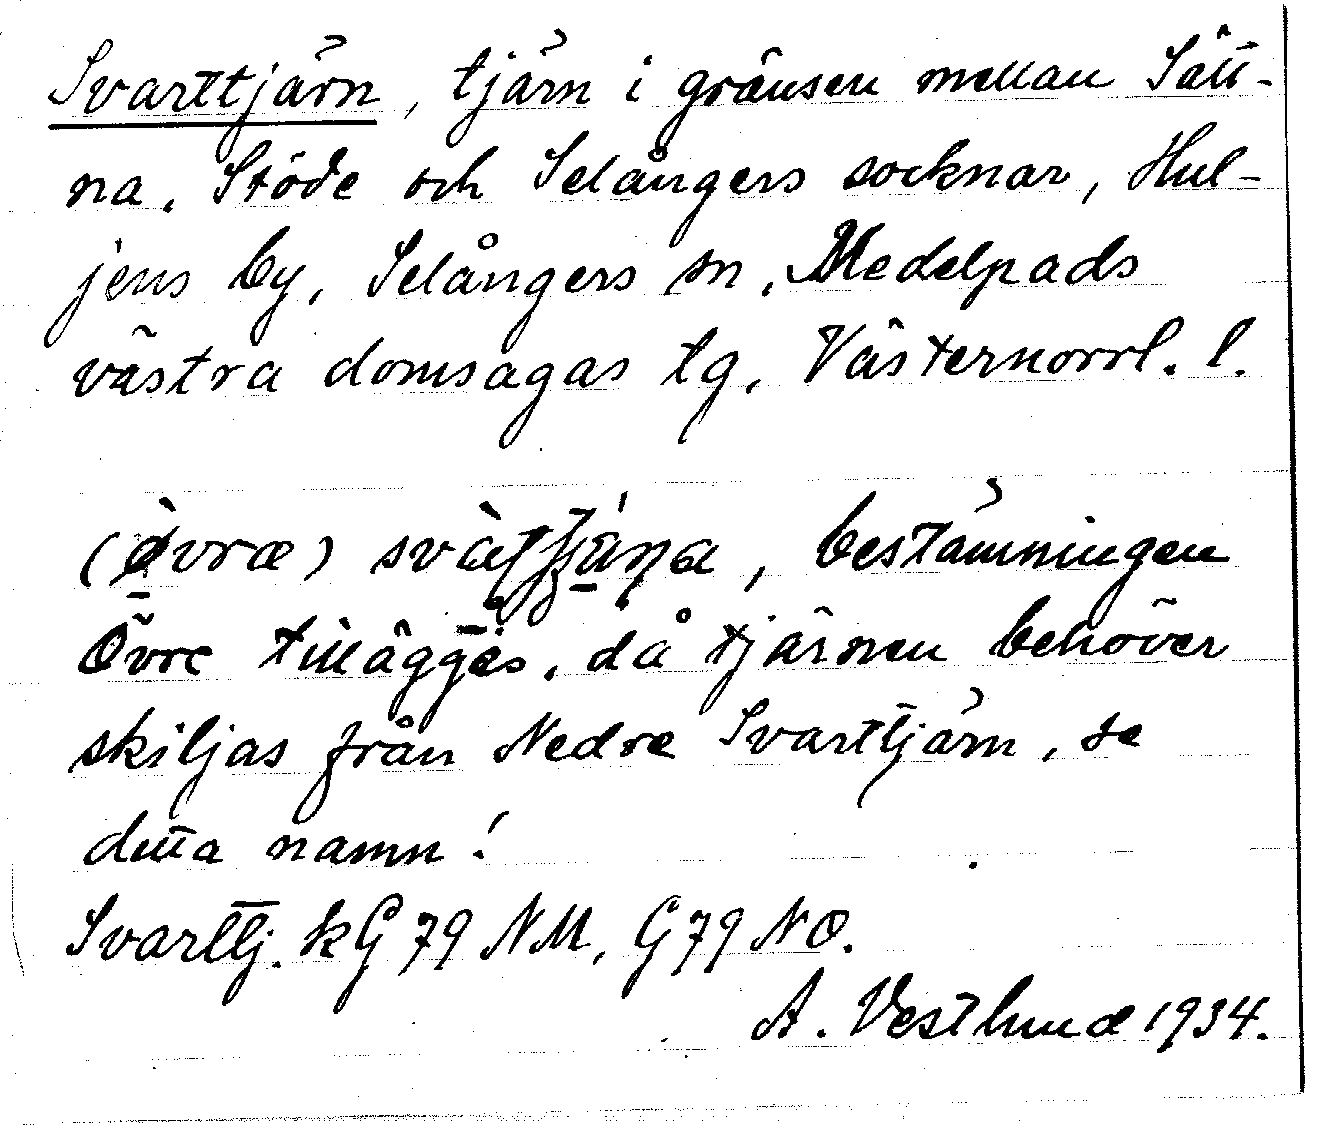 Svarttjärn, tjärn i gränsen mellan Sätt-
na, Stöde och Selångers socknar, Hul-
jens by, Selångers sn, Medelpads
västra domsagas tg, Västernorrl. l.
bestämningen
Övre tillägges, då tjärnen behöver
skiljas från Nedre Svarttjärn, se
detta namn!
Svarttj. kG 79 NM, G 79 NO.
A. Vestlund 1934.